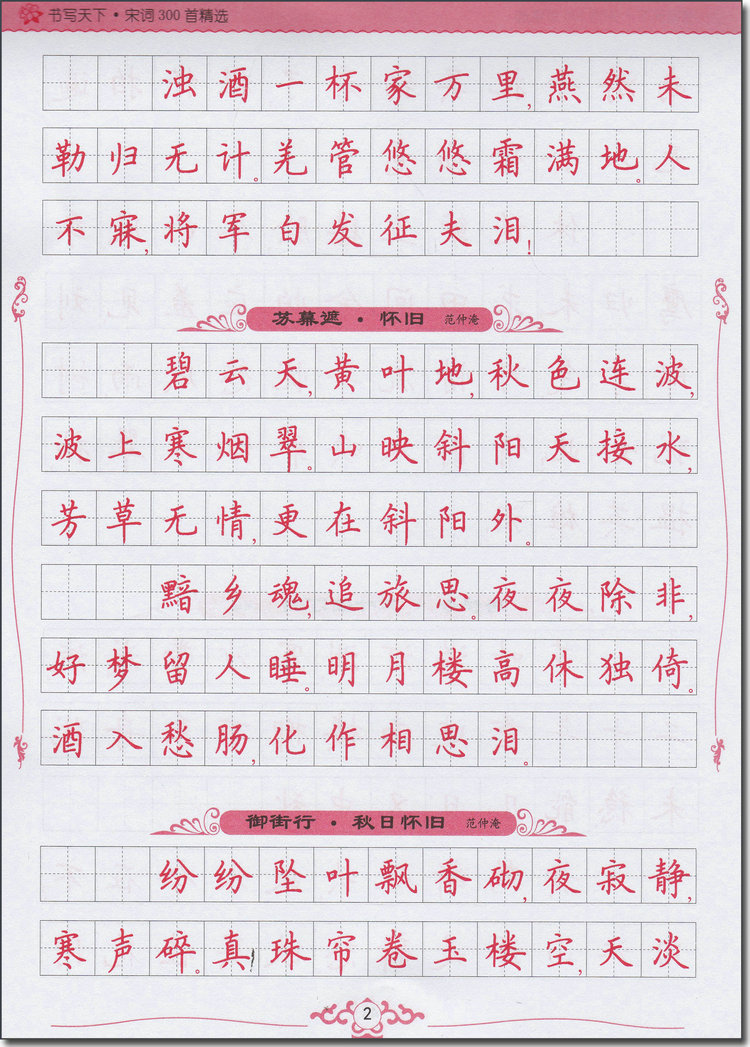 书写天下·宋词300首精选
浊酒一杯家万里,燕然未
勒归无计。羌管悠悠霜满地。人
不寐,将军白发征夫泪!
苏幕遮·怀旧 范仲淹
碧云天,黄叶地,秋色连波,
波上寒烟翠。山映斜阳天接水,
芳草无情,更在斜阳外。
黯乡魂,追旅思。夜夜除非,
好梦留人睡。明月楼高休独倚。
酒入愁肠,化作相思泪。
御街行·秋日怀旧 范仲淹
纷纷坠叶飘香砌,夜寂静,
寒声碎。真珠帘卷玉楼空,天淡
2